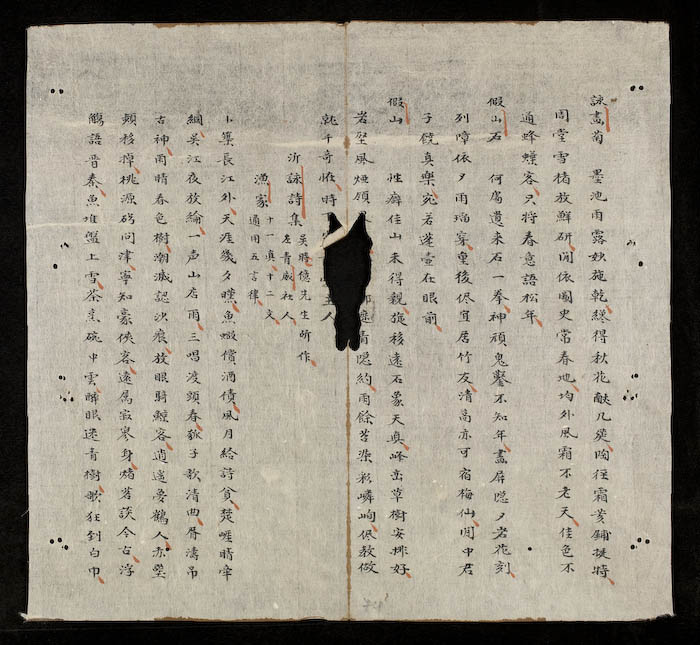 詠畫菊 墨池雨露妙施乾綠得秋花献几筵陶徑霜黄鋪挺特
周堂雪楮放鮮研閑依國史常春地均外風霜不老天佳色不
逋蜂客只將春意語松年
假山石 何處遺来石一拳神頑鬼鑿不知年畫屏隠夕岩花刻
列障依夕雨穿重後侭宜居竹友清高亦可宿梅仙閒中君
子饒真樂宛若蓬壺在眼前
假山 性癖佳山未得親施移遠石象天真峰巒草樹安排好
岩壑風煙領青隠約雨餘苔染彩嶙峋侭教做
千奇恠時主人
沂詠詩集
吳時億先生所作
左青威社人
漁家
十一真十二文
通用五言律
卜築長江外天涯幾夕曛魚蝦償酒債風月給詩貧楚崕晴牽
網吳江夜放綸一声山店雨三唱渡頭春孤子歌清曲胥濤吊
古神雨晴春色樹潮減認沙痕放眼騎鯨客逍遥夢鶴人赤壁
頰移掉桃源碍問津寧知豪俠客遠属寂寥身茗談今古浮
觴語晋秦魚堆盤上雪茶烹碗中雲醉眼迷青樹歌狂到白巾